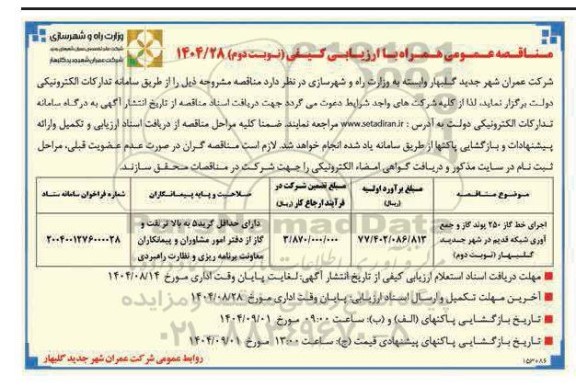 وزارت راه و شهرسازی
شرکت عمران شهر جدید گلبهار
مناقصه عمومی همراه با ارزیابی کیفی (نوبت دوم) ۱۴۰۴/۲۸
شرکت عمران شهر جدید گلبهار وابسته به وزارت راه و شهرسازی در نظر دارد مناقصه مشروحه ذیل را از طریق سامانه تدارکات الکترونیکی
دولت برگزار نماید، لذا از کلیه شرکت های واجد شرایط دعوت می گردد جهت دریافت اسناد مناقصه از تاریخ انتشار آگهی به درگاه سامانه
تدارکات الکترونیکی دولت به آدرس : www.setadiran.ir مراجعه نمایند. ضمنا کلیه مراحل مناقصه از دریافت اسناد ارزیابی و تکمیل وارائه
پیشنهادات و بازگشایی پاکتها از طریق سامانه یاد شده انجام خواهد شد. لازم است مناقصه گران در صورت عدم عضویت قبلی، مراحل
ثبت نام در سایت مذکور و دریافت گواهی امضاء الکترونیکی را جهت شرکت در مناقصات محقق سازند.
موضوع مناقصه
مبلغ برآورد اولیه (ریال)
مبلغ تضمین شرکت در فرآیند ارجاع کار (ریال)
صلاحیت و پایه پیمانکاران
شماره فراخوان سامانه ستاد
اجرای خط گاز ۲۵۰ پوند گاز و جمع آوری شبکه قدیم در شهر جدید گلبهار (نوبت دوم)
۷۷/۴۰۲/۰۸۶/۸۱۳
۳/۸۷۰/۰۰۰/۰۰۰
دارای حداقل گرید۵ به بالا در نفت و گاز از دفتر امور مشاوران و پیمانکاران معاونت برنامه ریزی و نظارت راهبردی
۲۰۰۴۰۰۱۲۷۶۰۰۰۰۲۸
مهلت دریافت اسناد استعلام ارزیابی کیفی از تاریخ انتشار آگهی: لغایت پایان وقت اداری مورخ ۱۴۰۴/۰۸/۱۴
آخرین مهلت تکمیل و ارسال اسناد ارزیابی: پایان وقت اداری مورخ ۱۴۰۴/۰۸/۲۸
تاریخ بازگشایی پاکتهای (الف) و (ب): ساعت ۰۹:۰۰ مورخ ۱۴۰۴/۰۹/۰۱
تاریخ بازگشایی پاکتهای پیشنهادی قیمت (ج): ساعت ۱۳:۰۰ مورخ ۱۴۰۴/۰۹/۰۱
روابط عمومی شرکت عمران شهر جدید گلبهار
۱۵۳۰۸۶